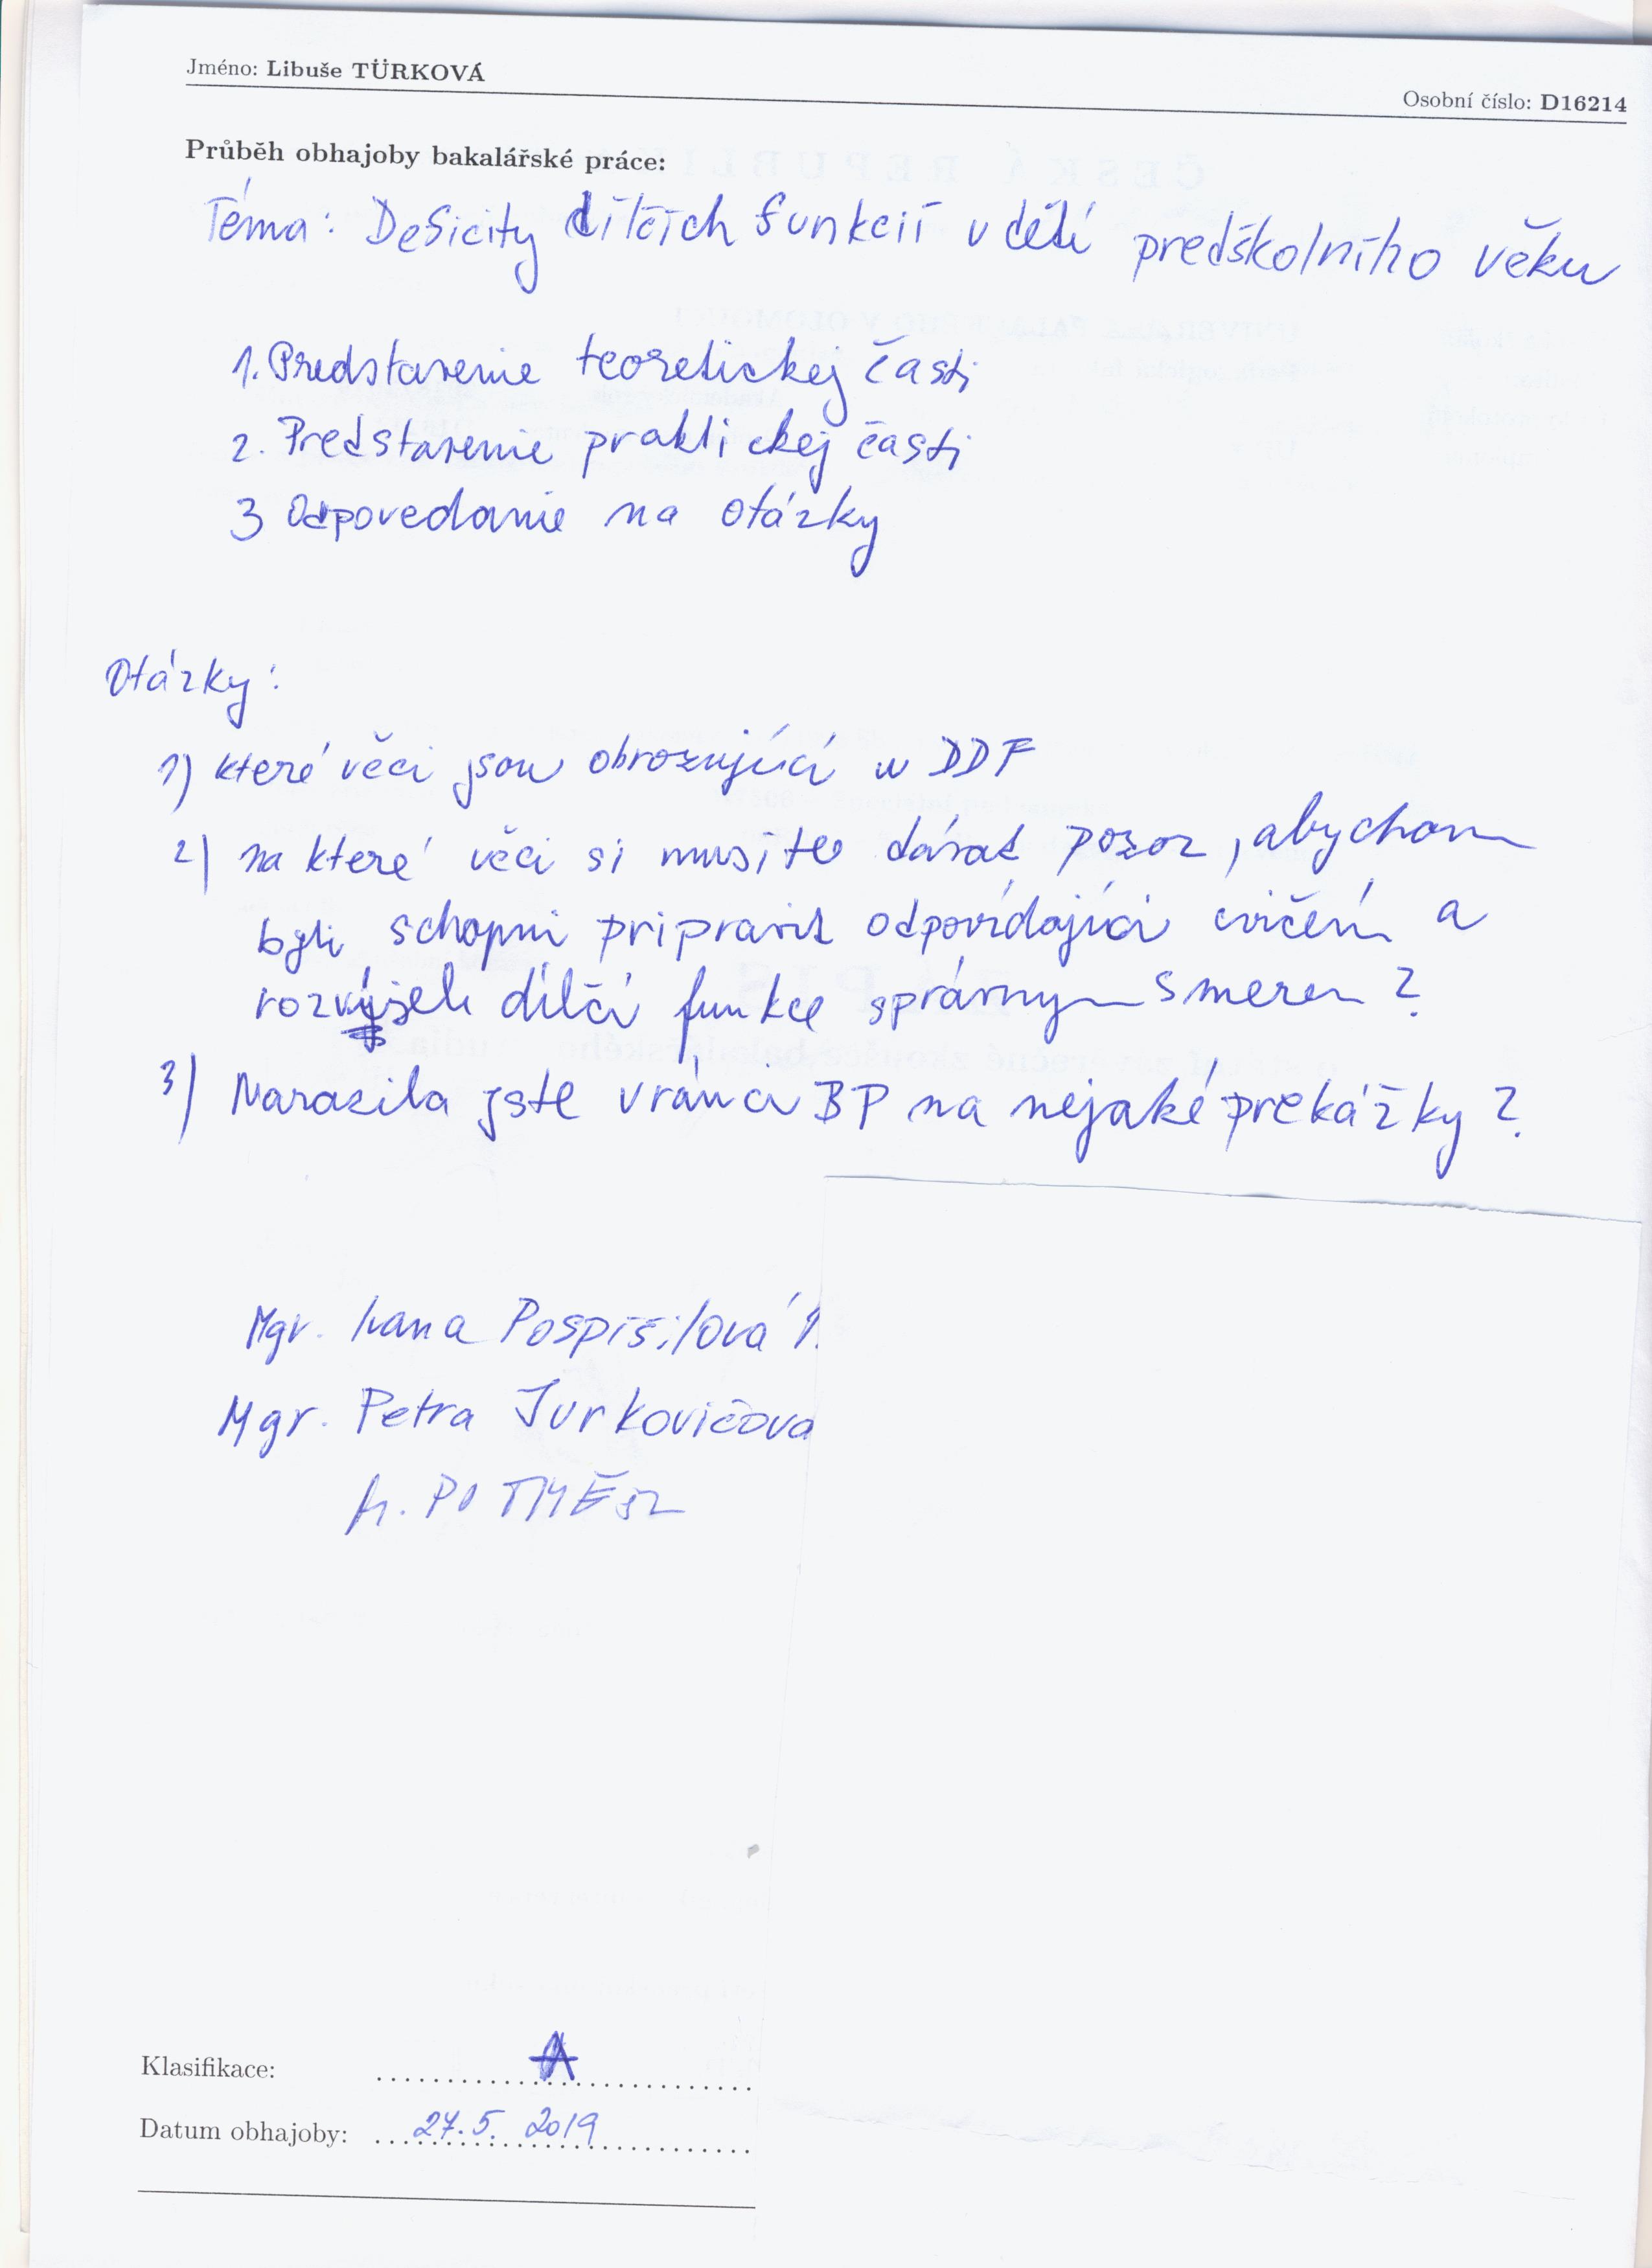 Jméno: Libuše TÜRKOVÁ
Osobní číslo: D16214
Průběh obhajoby bakalářské práce:
Téma: Deficity dílčích funkcií u dětí predškolního věku
1. Predstavenie teoretickej časti
2. Predstavenie praktickej časti
3 Odpovedanie na otázky
Otázky:
1) které věci jsou ohrožující u DDF
2) na které věci si musíte dávat pozor, abychom
byli schopni pripravit odpovídajíci cvičení a
rozvíjeli dílčí funkce správnym smerem?
3) Narazila jste v rámci BP na nejaké prekážky?
Mgr. Ivana Pospíšilová
Mgr. Petra Jurkovičova
M. POTMĚŠIL
Klasifikace: A
Datum obhajoby: 27.5. 2019